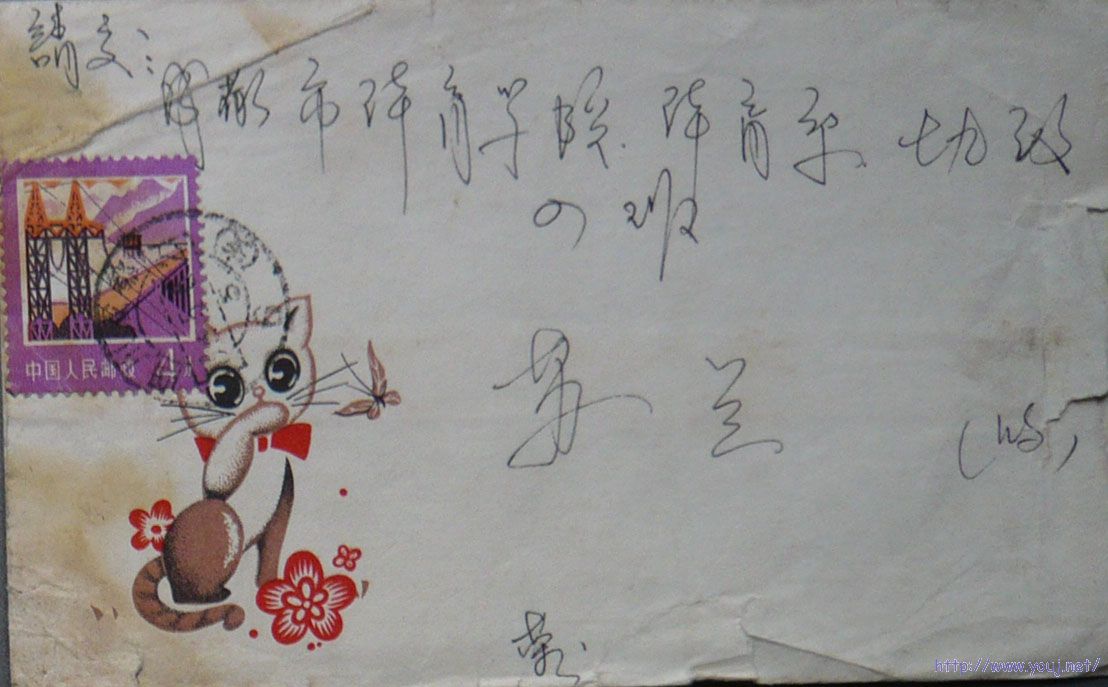 請交：
成都市体育学院 体育系 七九级
四班
苏 兰 (收)
中国人民邮政
http://www.youj.net/